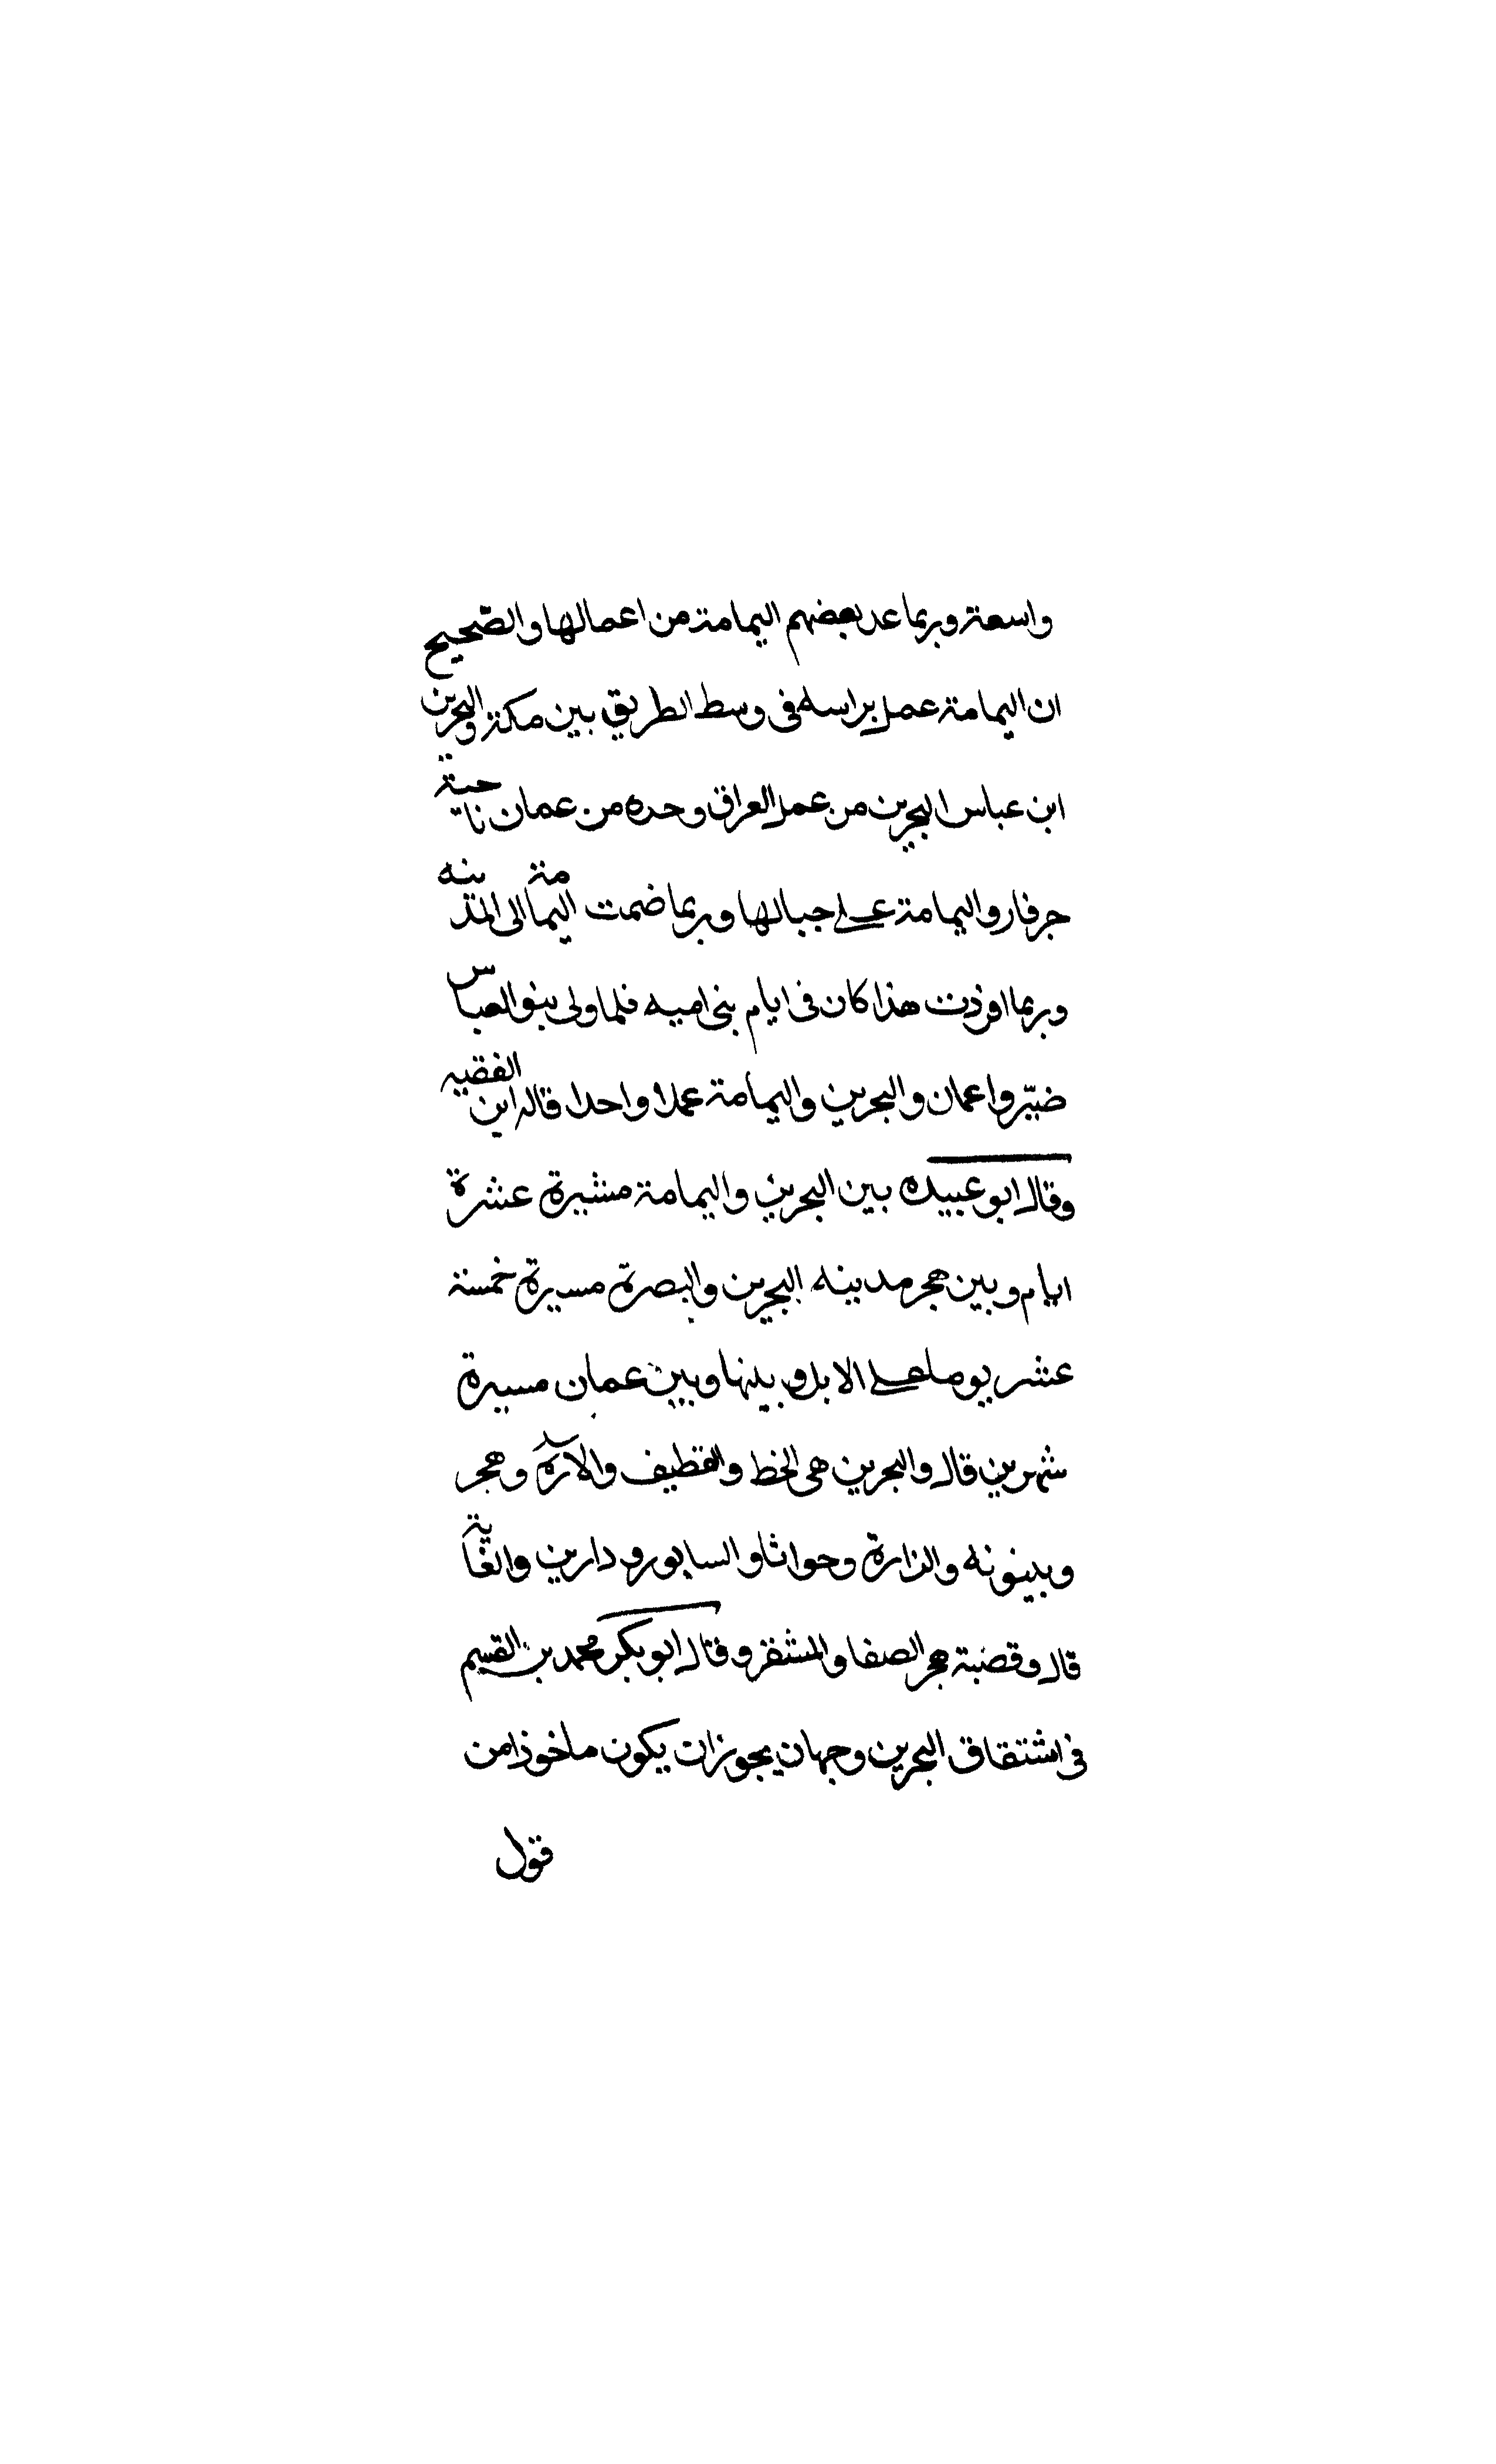 واسعة وربما عد بعضهم اليمامة من اعمالها والصّحيح
ان اليمامة عمل براسه فى وسط الطريق بين مكة والبحرين
ابن عباس البحرين من عمل العراق وحده من عمان ناحية
جرفار واليمامة على جبالها وربما ضمت اليمامة الى المدينه
وربما افردت هذا كان فى ايام بنى اميه فلما ولى بنو العباس
ضيّروا عمان والبحرين واليمامة عملا واحدا قاله ابن الفقيه
وقال ابو عبيده بين البحرين واليمامة مشيرة عشرة
ايام وبين هجر مدينه البحرين والبصرة مسيرة خمسة
عشر يوما على الابل وبينها وبين عمان مسيرة
شهرين قال والبحرين هى الخط والقطيف والاره وهجر
وبينونه والزارة وجواثا والسابور ودارين والغابة
قال وقصبة هجر الصفا والمشقر وقال ابو بكر محمد بن القسم
فى اشتقاق البحرين وجهان يجوز ان يكون ماخوذا من
قول